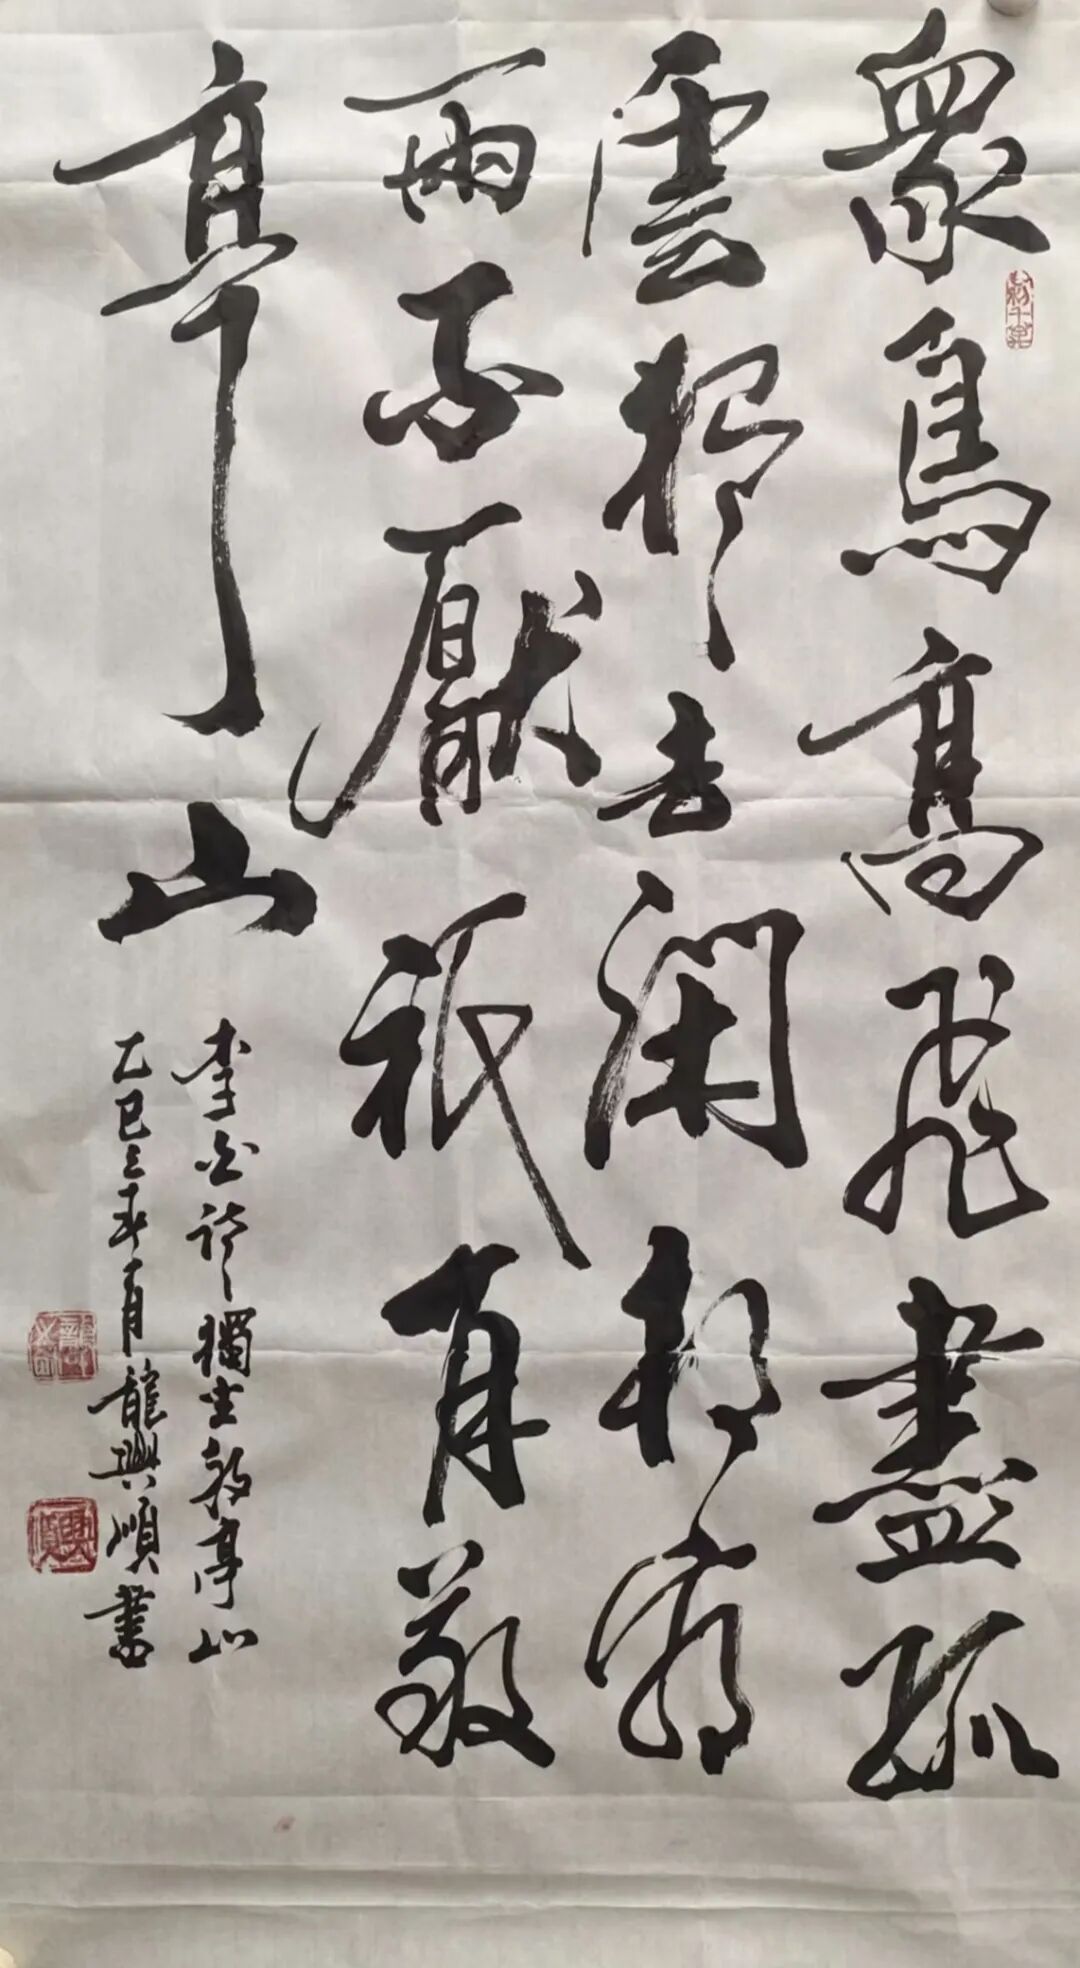 眾鳥高飛盡孤
雲獨去閑相看
兩不厭祇有敬
亭山
李白詩獨坐敬亭山
乙巳春月龍興順書
興順